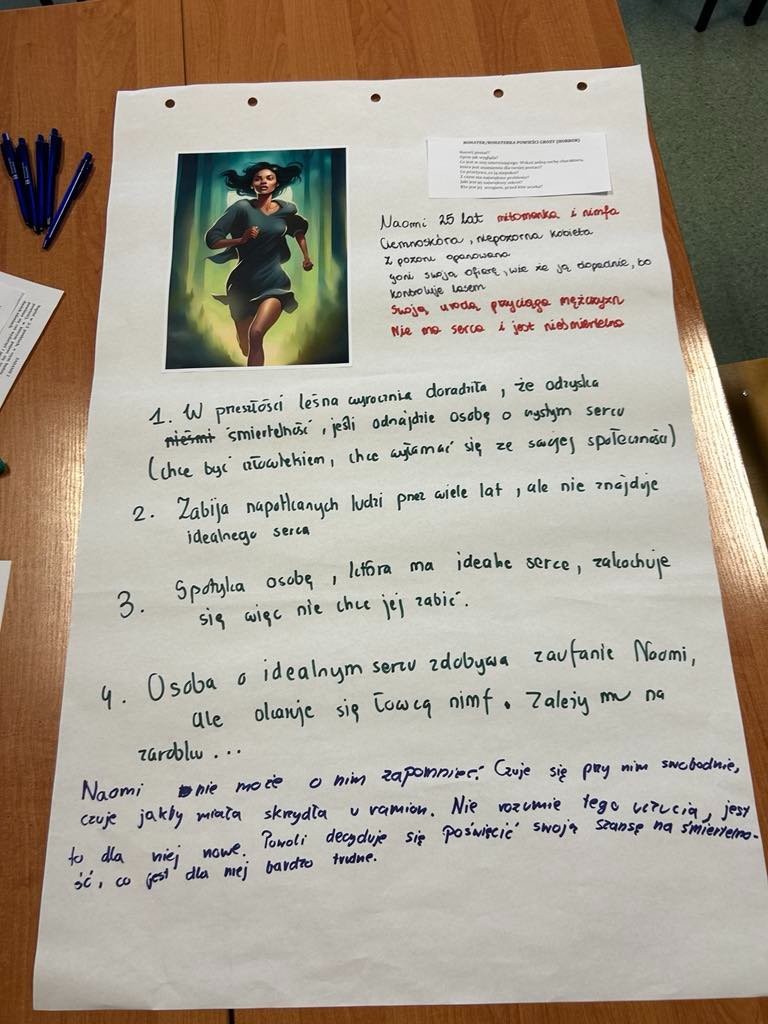 BOHATER/BOHATERKA POWIEŚCI GROZY (HORROR)
Naomi 25 lat mitomanka i nimfa
Ciemnoskóra, niepozorna kobieta
z pozoru opanowana
goni swoją ofiarę, wie że ją dopadnie, bo
kontroluje lasem
Swoją urodą przyciąga mężczyzn
Nie ma serca i jest nieśmiertelna
1. W przeszłości leśna wyrocznia doradziła, że odzyska
nieśmi śmiertelność, jeśli odnajdzie osobę o czystym sercu
(chce być człowiekiem, chce wyłamać się ze swojej społeczności)
2. Zabija napotkanych ludzi przez wiele lat, ale nie znajduje
idealnego serca
3. Spotyka osobę, która ma idealne serce, zakochuje
się więc nie chce jej zabić.
4. Osoba o idealnym sercu zdobywa zaufanie Naomi,
ale okazuje się łowcą nimf. Zależy mu na
zarobku...
Naomi nie może o nim zapomnieć. Czuje się przy nim swobodnie,
czuje jakby miała skrzydła u ramion. Nie rozumie tego uczucia, jest
to dla niej nowe. Powoli decyduje się poświęcić swoją szansę na śmierteln-
ość, co jest dla niej bardzo trudne.